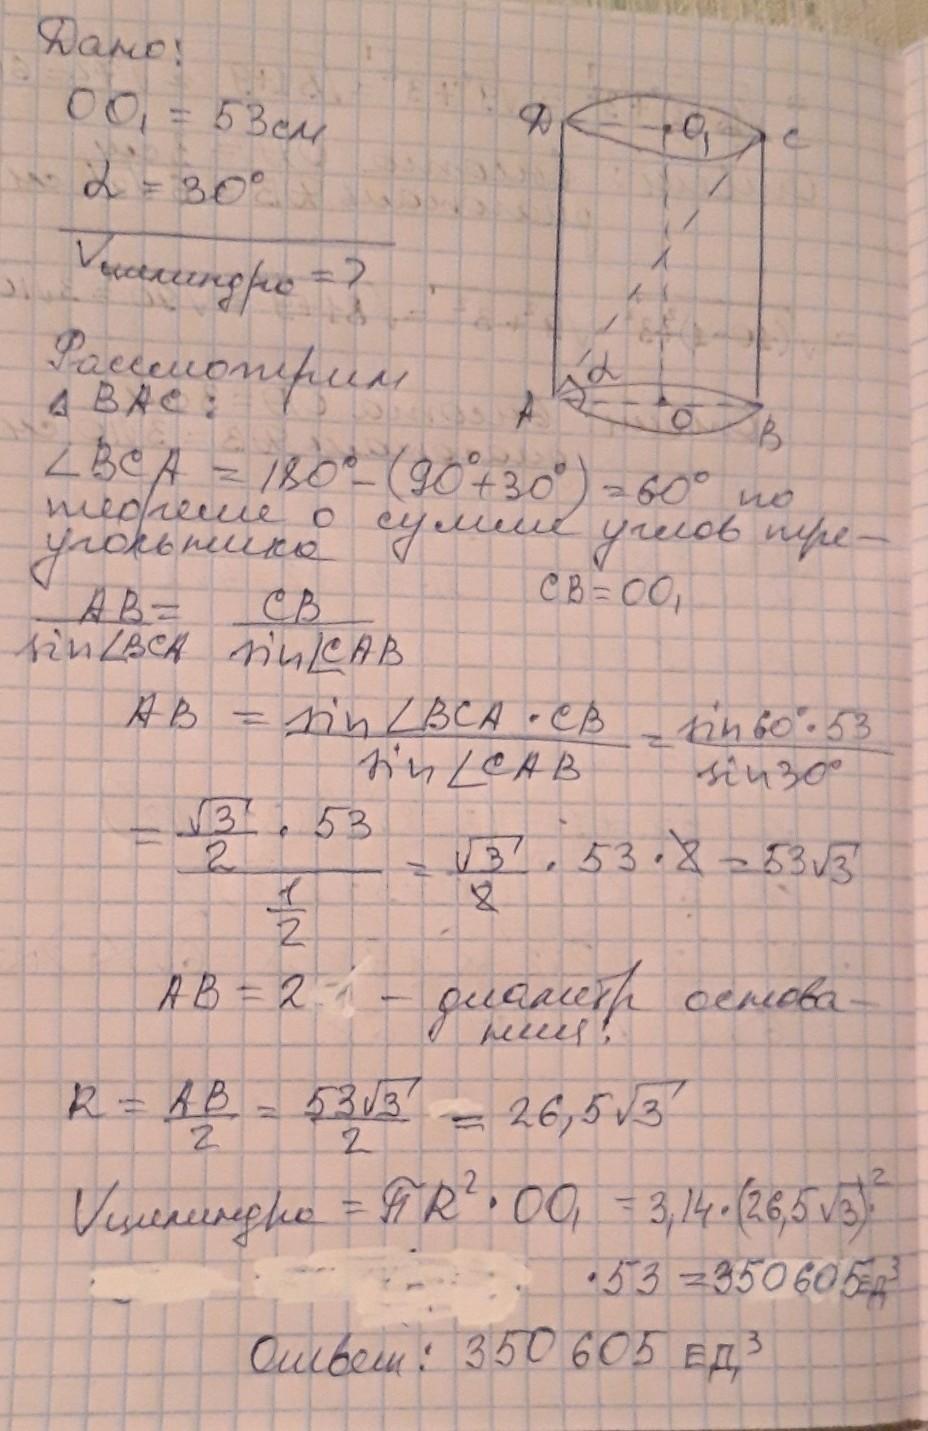 Дано:
OO₁ = 53см
α = 30°
Vцилиндра = ?
D O₁ C
α
A O B
Рассмотрим
△ BAC:
∠BCA = 180° - (90° + 30°) = 60° по
теореме о сумме углов тре-
угольника
CB = OO₁
AB/sin∠BCA = CB/sin∠CAB
AB = sin∠BCA · CB/sin∠CAB = sin60° · 53/sin30°
= (√3/2 · 53)/(1/2) = √3/2 · 53 · 2 = 53√3
AB = 2 - диаметр основа-
ния:
R = AB/2 = 53√3/2 = 26,5√3
Vцилиндра = πR² · OO₁ = 3,14 · (26,5√3)² ·
· 53 = 350605 ед³
Ответ: 350 605 ед³